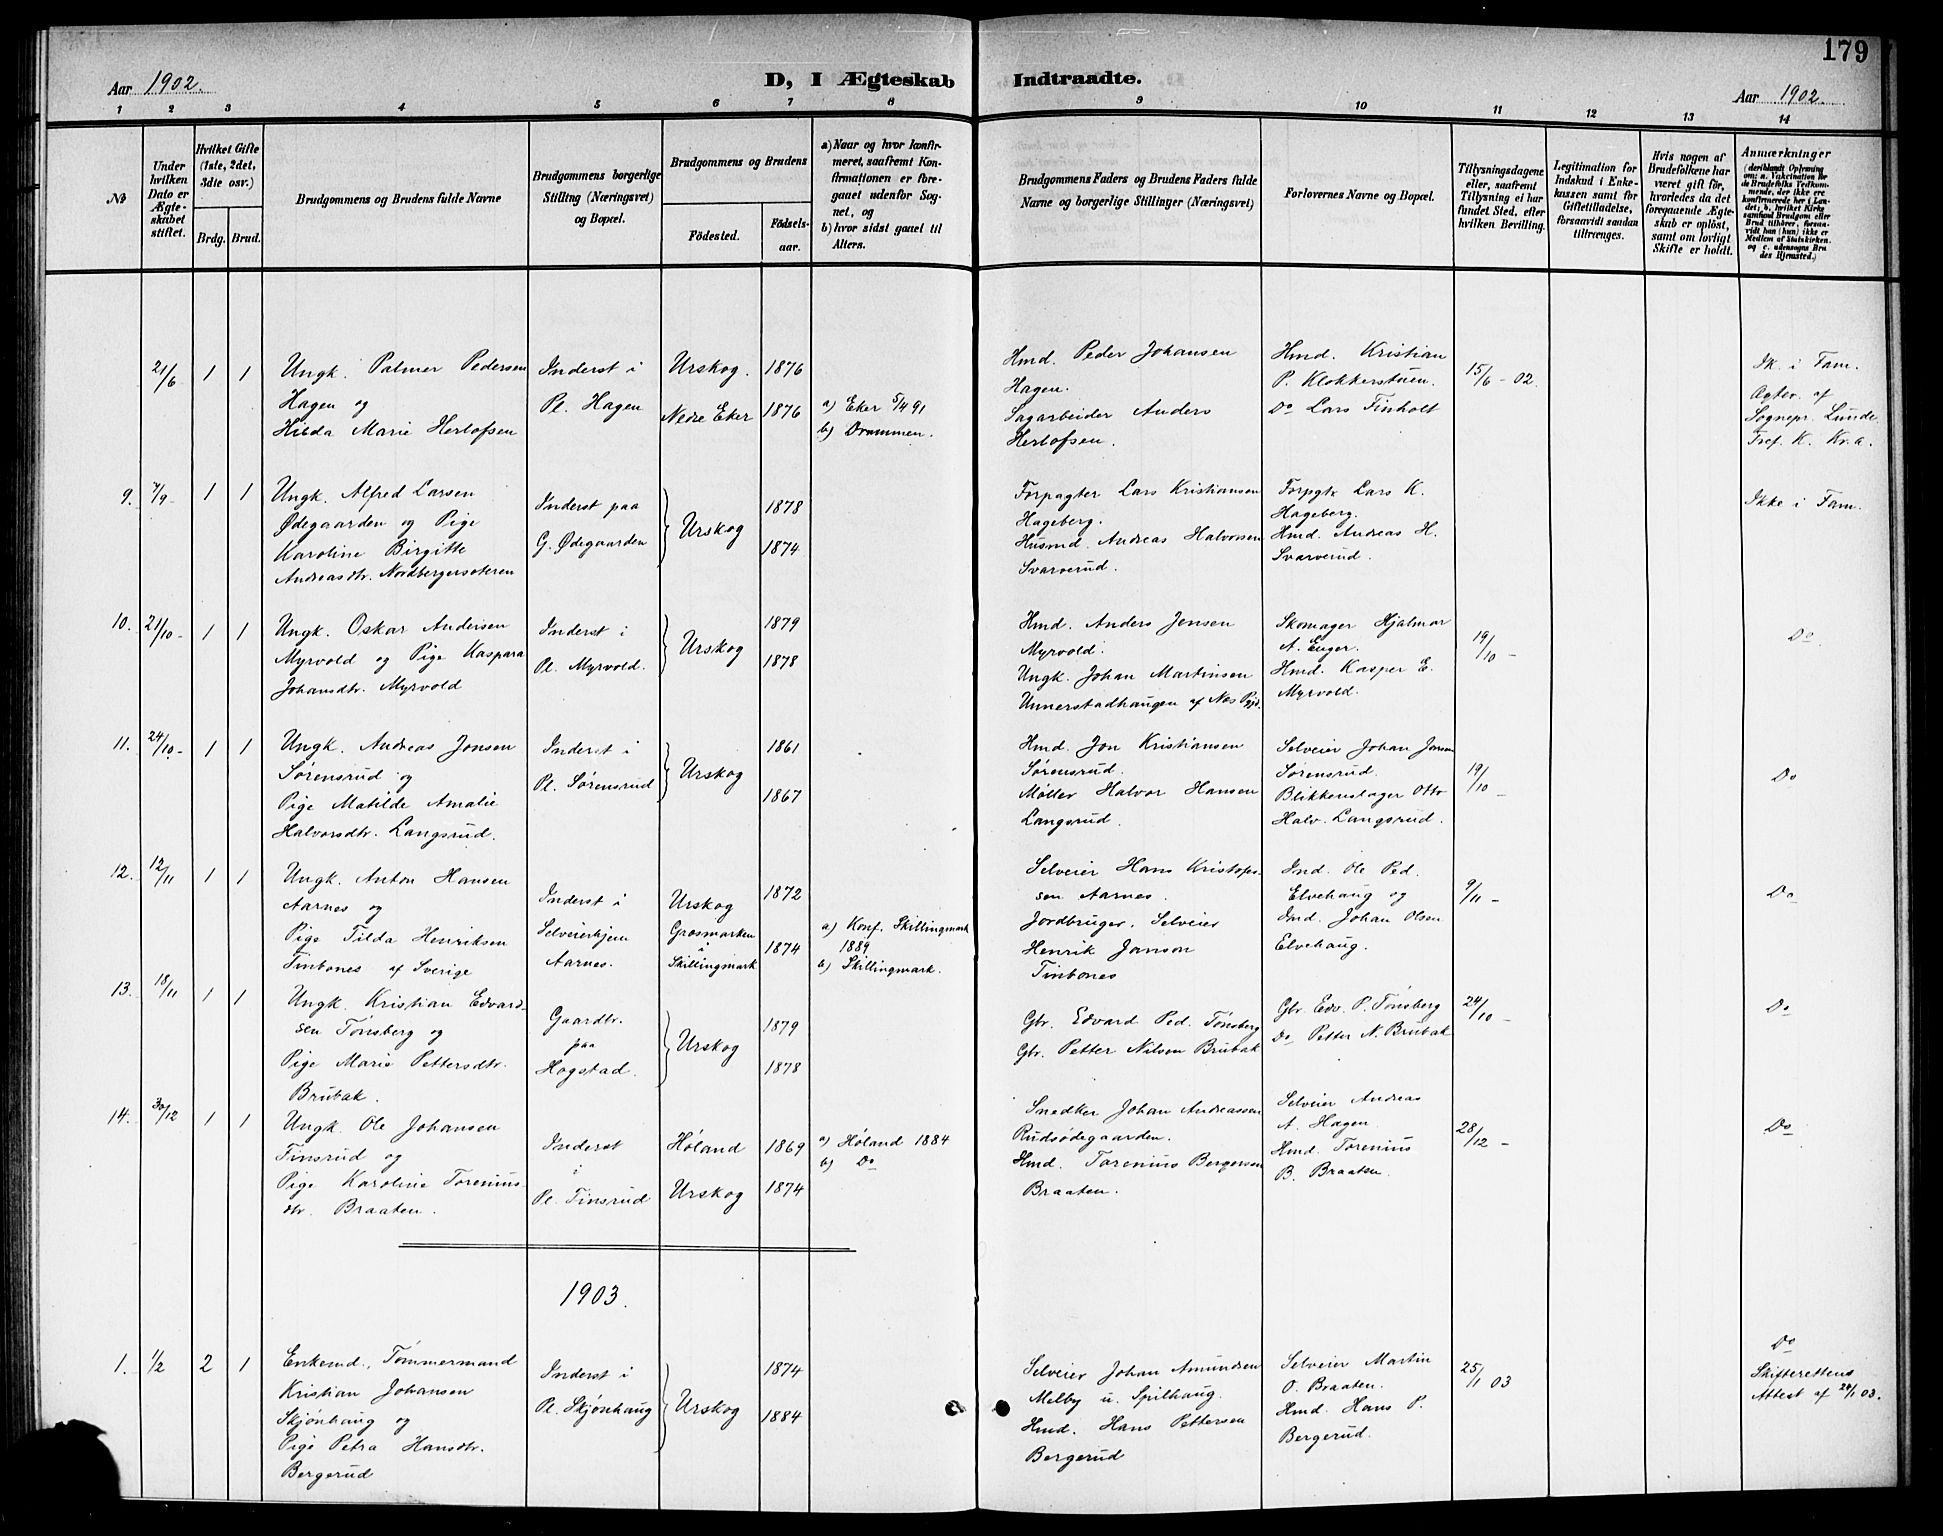 179
Aar 1902.
D, I Ægteskab Indtraadte.
Aar 1902.
1 2 3 4 5 6 7 8 9 10 11 12 13 14
No
Under hvilken Dato er Ægteskabet stiftet.
Hvilket Gifte (1ste, 2det, 3dte osv.)
Brdg. Brud.
Brudgommens og Brudens fulde Navne
Brudgommens borgerlige Stilling (Næringsvei) og Bopæl.
Brudgommens og Brudens
Fødested. Fødselsaar.
a) Naar og hvor konfirmeret, saafremt Konfirmationen er foregaaet udenfor Sognet, og
b) hvor sidst gaaet til Alters.
Brudgommens Faders og Brudens Faders fulde Navne og borgerlige Stillinger (Næringsvei)
Forlovernes Navne og Bopæl.
Tillysningsdagene eller, saafremt Tillysning ei har fundet Sted, efter hvilken Bevilling.
Legitimation for Indskud i Enkekassen samt for Giftetilladelse, forsaavidt saadan tiltrænges.
Hvis nogen af Brudefolkene har været gift før, hvorledes da det foregaaende Ægteskab er opløst, samt om lovligt Skifte er holdt.
Anmærkninger
(deriblandt Oplysning om: a. Vakcination for de Brudefolks Vedkommende, der ikke ere konfirmerede her i Landet; b. hvilket Kirkesamfund Brudgom eller Brud tilhører, forsaavidt han (hun) ikke er Medlem af Statskirken, og c. udensogns Brudes Hjemsted.)
21/6 1 1
Ungk. Palmer Pedersen
Hagen og
Hilda Marie Herlofsen
Inderst i
Pl. Hagen
Urskog. 1876
Nedre Eker 1876
a) Eker 5/4 91
b) Drammen.
Hmd. Peder Johansen
Hagen.
Sagarbeider Anders
Herlofsen.
Hmd. Kristian
P. Klokkerstuen.
Do Lars Finholt
15/6 - 02.
Ik. i Fam.
Ægtev. af
Sognepr. Lunde
Tref. K. Kr.a.
9. 7/9- 1 1
Ungk. Alfred Larsen
Ødegaarden og Pige
Karoline Birgitte
Andreasdtr. Nordbergerseteren
Inderst paa
G. Ødegaarden
Urskog
1878
1874
Forpagter Lars Kristiansen
Hageberg.
Husmd. Andreas Halvorsen
Svarverud.
Forpgtr Lars K.
Hageberg.
Hmd. Andreas H.
Svarverud.
Ikke i Fam.
10. 21/10- 1 1
Ungk. Oskar Andersen
Myrvold og Pige Kaspara
Johansdtr. Myrvold
Inderst i
Pl. Myrvold.
Urskog
1879
1878
Hmd. Anders Jensen
Myrvold.
Ungk. Johan Martinsen
Unnerstadhaugen af Nes Pgjd.
Skomager Hjalmar
A. Enger.
Hmd. Kasper E.
Myrvold.
19/10 -
Do
11. 24/10- 1 1
Ungk. Andreas Jonsen
Sørensrud og
Pige Matilde Amalie
Halvorsdtr. Langsrud.
Inderst i
Pl. Sørensrud
Urskog
1861
1867
Hmd. Jon Kristiansen
Sørensrud.
Møller Halvor Hansen
Langsrud.
Selveier Johan Jonsen
Sørensrud.
Blikkenslager Otto
Halv. Langsrud.
19/10 -
Do
12. 12/11 1 1
Ungk. Anton Hansen
Aarnes og
Pige Tilda Henriksen
Tinbones af Sverige
Inderst i
Selveierhjem
Aarnes.
Urskog 1872
Grasmarken
i
Skillingmark 1874
a) Konf. Skillingmark
1889
b) Skillingmark.
Selveier Hans Kristofersen
Aarnes.
Jordbruger, Selveier
Henrik Janson
Tinbones
Ind. Ole Ped.
Elvehaug og
Ind. Johan Olsen
Elvehaug.
9/11 -
Do
13. 18/11 1 1
Ungk. Kristian Edvardsen
Tønsberg og
Pige Marie Pettersdtr.
Brubak.
Gaardbr.
paa
Hogstad.
Urskog
1879
1878
Gbr. Edvard Ped. Tønsberg
Gbr. Petter Nilsen Brubak
Gbr. Edv. P. Tønsberg
Do Petter N. Brubak
24/10 -
Do
14. 30/12 1 1
Ungk. Ole Johansen
Finsrud og
Pige Karoline Toreniusdtr.
Braaten.
Inderst
i
Pl. Finsrud
Høland 1869
Urskog 1874
a) Høland 1884
b) Do
Snedker Johan Andreassen
Rudsødegaarden.
Hmd. Torenius Bergersen
Braaten.
Selveier Andreas
A. Hagen.
Hmd. Torenius
B. Braaten.
28/12 -
Do
1903.
1. 1/2 2 1
Enkemd., Tømmermand
Kristian Johansen
Skjønhaug og
Pige Petra Hansdtr.
Bergerud
Inderst i
Pl. Skjønhaug
Urskog
1874
1884
Selveier Johan Amundsen
Melby u. Spilhaug.
Hmd. Hans Pettersen
Bergerud
Selveier Martin
O. Braaten.
Hmd. Hans P.
Bergerud.
25/1 03
Do
Skifterettens
Attest af 24/1 03.